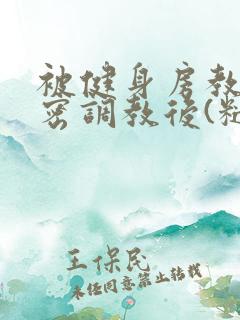 被健身房教
密調教後(
王保民
未经同意禁止转载